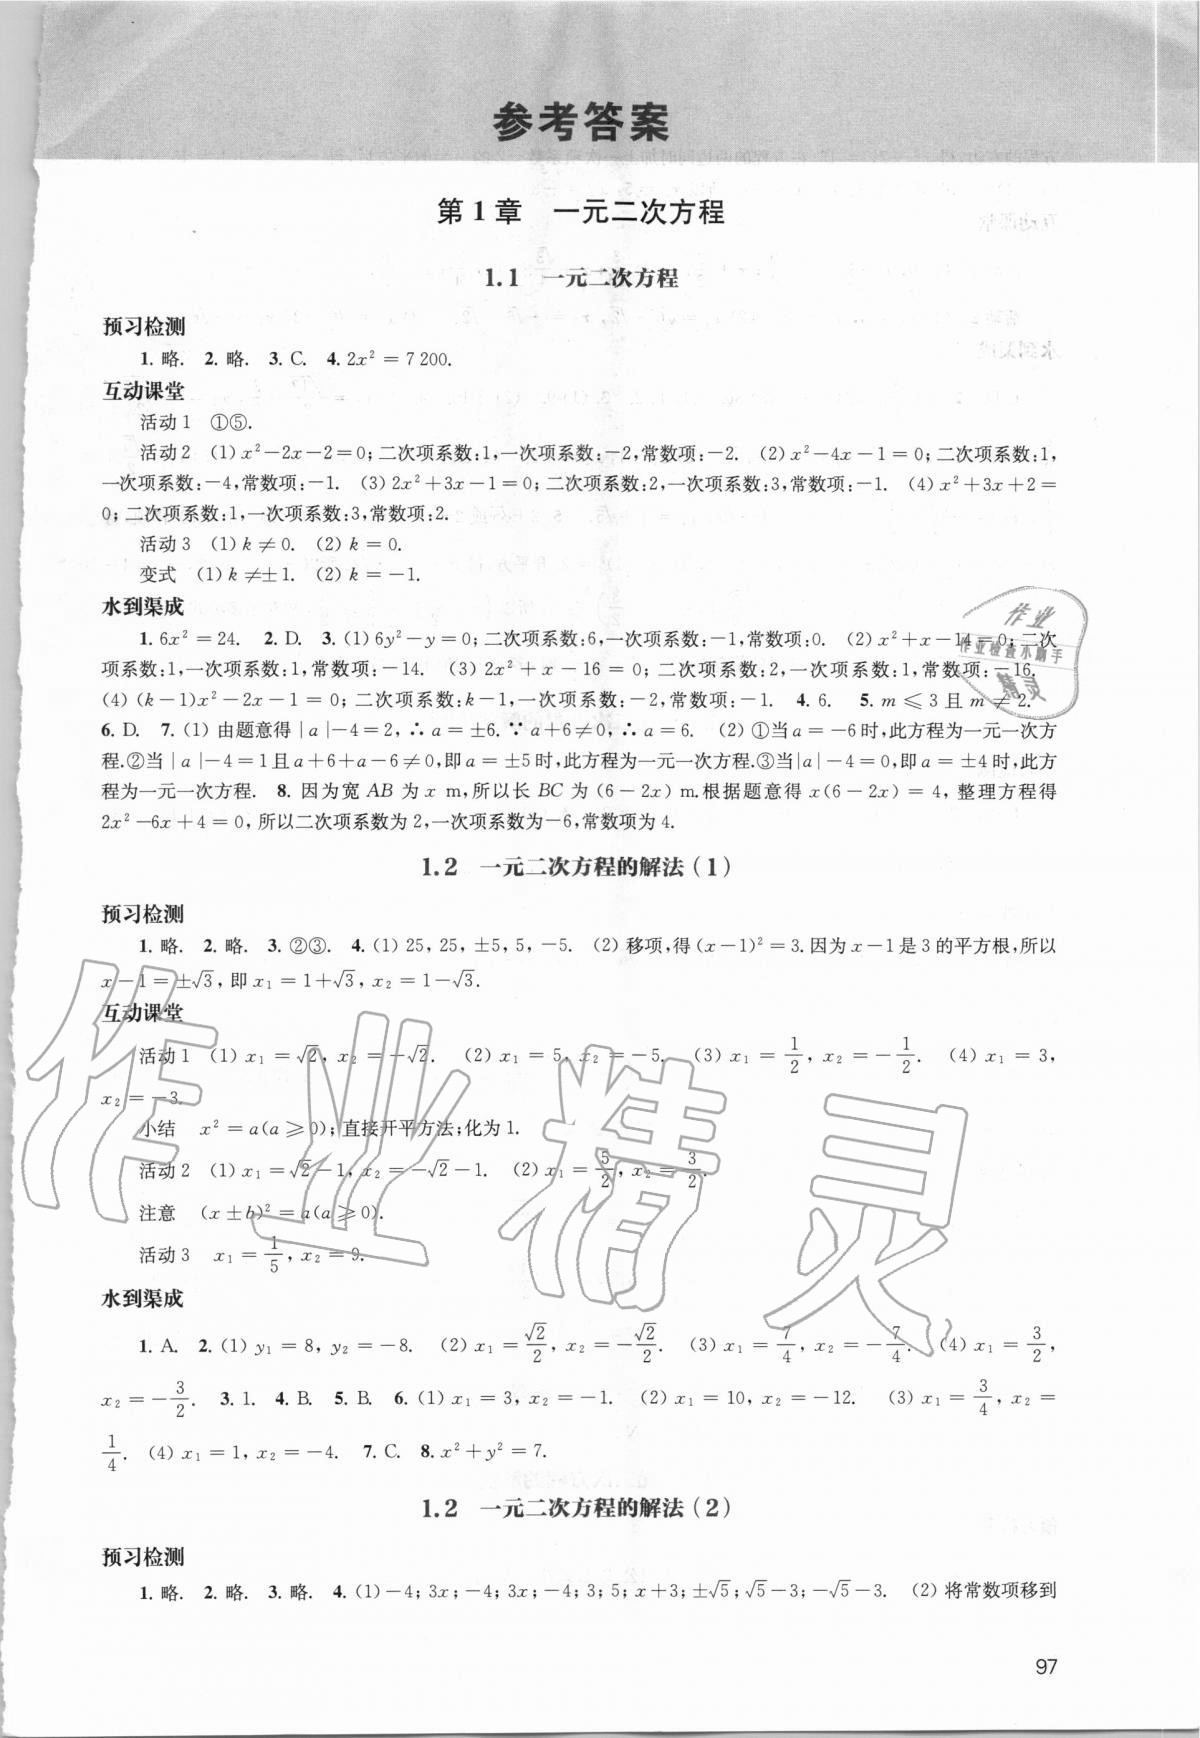 参考答案
第1章　一元二次方程
1.1　一元二次方程
预习检测
1. 略.　2. 略.　3. C.　4. 2x²=7 200.
互动课堂
活动1　①⑤.
活动2　(1) x²-2x-2=0;二次项系数:1,一次项系数:-2,常数项:-2.　(2) x²-4x-1=0;二次项系数:1,
一次项系数:-4,常数项:-1.　(3) 2x²+3x-1=0;二次项系数:2,一次项系数:3,常数项:-1.　(4) x²+3x+2=
0;二次项系数:1,一次项系数:3,常数项:2.
活动3　(1) k≠0.　(2) k=0.
变式　(1) k≠±1.　(2) k=-1.
水到渠成
1. 6x²=24.　2. D.　3. (1) 6y²-y=0;二次项系数:6,一次项系数:-1,常数项:0.　(2) x²+x-14=0;二次
项系数:1,一次项系数:1,常数项:-14.　(3) 2x²+x-16=0;二次项系数:2,一次项系数:1,常数项:-16.
(4) (k-1)x²-2x-1=0;二次项系数:k-1,一次项系数:-2,常数项:-1.　4. 6.　5. m≤3且m≠2.
6. D.　7. (1) 由题意得|a|-4=2,∴a=±6.∵a+6≠0,∴a=6.　(2) ①当a=-6时,此方程为一元一次方
程.②当|a|-4=1且a+6+a-6≠0,即a=±5时,此方程为一元一次方程.③当|a|-4=0,即a=±4时,此方
程为一元一次方程.　8. 因为宽AB为x m,所以长BC为(6-2x) m.根据题意得x(6-2x)=4,整理方程得
2x²-6x+4=0,所以二次项系数为2,一次项系数为-6,常数项为4.
1.2　一元二次方程的解法(1)
预习检测
1. 略.　2. 略.　3. ②③.　4. (1) 25, 25, ±5, 5, -5.　(2) 移项,得(x-1)²=3.因为x-1是3的平方根,所以
x-1=±√3,即x₁=1+√3, x₂=1-√3.
互动课堂
活动1　(1) x₁=√2, x₂=-√2.　(2) x₁=5, x₂=-5.　(3) x₁=1/2, x₂=-1/2.　(4) x₁=3,
x₂=-3.
小结　x²=a(a≥0);直接开平方法;化为1.
活动2　(1) x₁=√2-1, x₂=-√2-1.　(2) x₁=5/2, x₂=3/2.
注意　(x±b)²=a(a≥0).
活动3　x₁=1/5, x₂=9.
水到渠成
1. A.　2. (1) y₁=8, y₂=-8.　(2) x₁=√2/2, x₂=-√2/2.　(3) x₁=7/4, x₂=-7/4.　(4) x₁=3/2,
x₂=-3/2.　3. 1.　4. B.　5. B.　6. (1) x₁=3, x₂=-1.　(2) x₁=10, x₂=-12.　(3) x₁=3/4, x₂=
1/4.　(4) x₁=1, x₂=-4.　7. C.　8. x²+y²=7.
1.2　一元二次方程的解法(2)
预习检测
1. 略.　2. 略.　3. 略.　4. (1) -4; 3x; -4; 3x; -4; 3; 5; x+3; ±√5; √5-3; -√5-3.　(2) 将常数项移到
97
作业
作业检查小助手
精灵
作业精灵